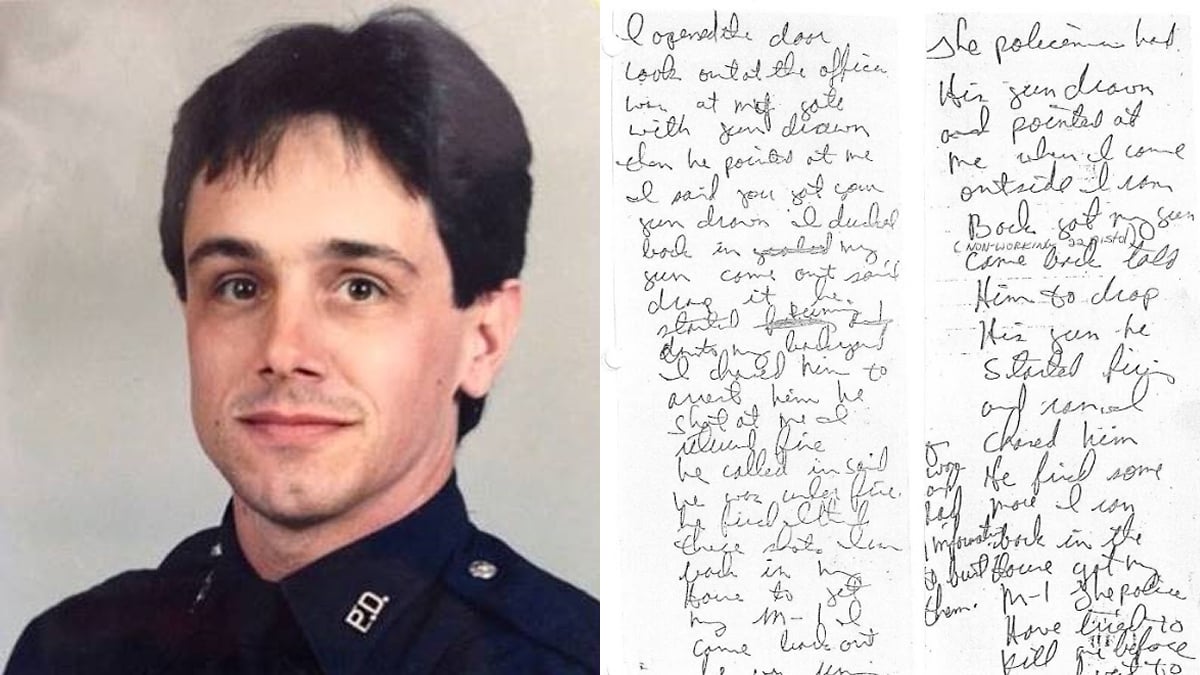 P.D.
I opened the door
look out at the office
was at my gate
with gun drawn
then he pointed at me
I said you got your
gun drawn I ducked
back in my
gun come out said
drop it he
started
my backyard
I chased him to
arrest him he
shot at me I
fire
he called in said
he was under fire.
he fired
these shots I ran
back in my
House to get
my M-1 I
came back out
The policeman had
His gun drawn
and pointed at
me when I came
outside I ran
Back got my gun
(NON-WORKING 22 PISTOL)
came back told
Him to drop
His gun he
started firing
and ran I
chased him
He fired some
more I ran
back in the
House got my
M-1 The police
Have tried to
kill me before
and
had
information
them.